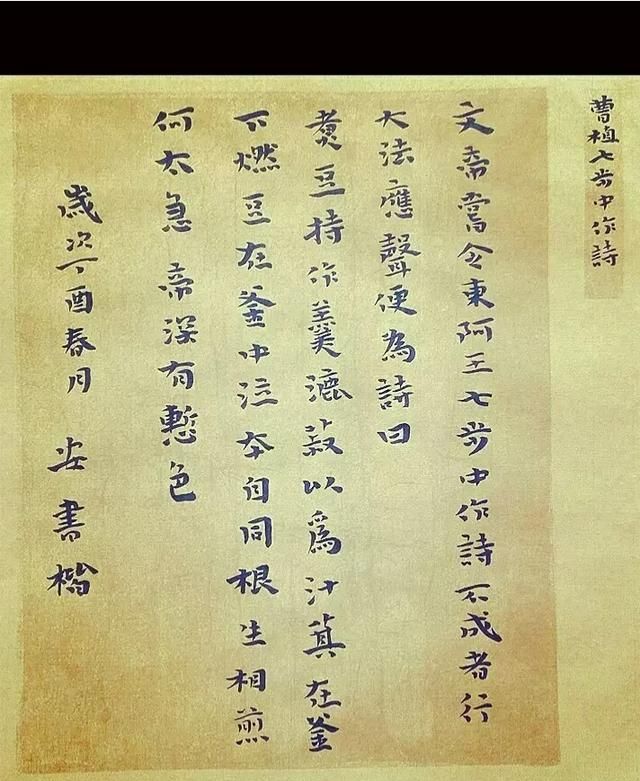 曹植七步中作詩
文帝嘗令東阿王七步中作詩不成者行
大法應聲便為詩曰
煑豆持作羹漉菽以為汁萁在釜
下燃豆在釜中泣本自同根生相煎
何太急 帝深有慙色
歲次丁酉春月 安書楷